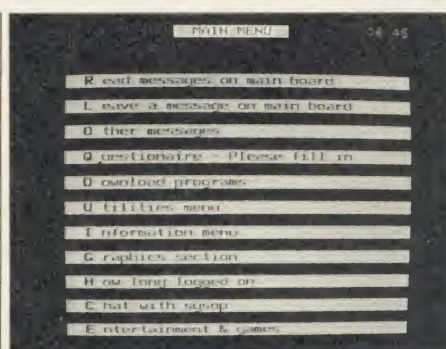 MAIN MENU
R ead messages on main board
L eave a message on main board
O ther messages
Q uestionaire - Please fill in
D ownload programs
U tilities menu
I nformation menu
G raphics section
H ow long logged on
C hat with sysop
E ntertainment & games